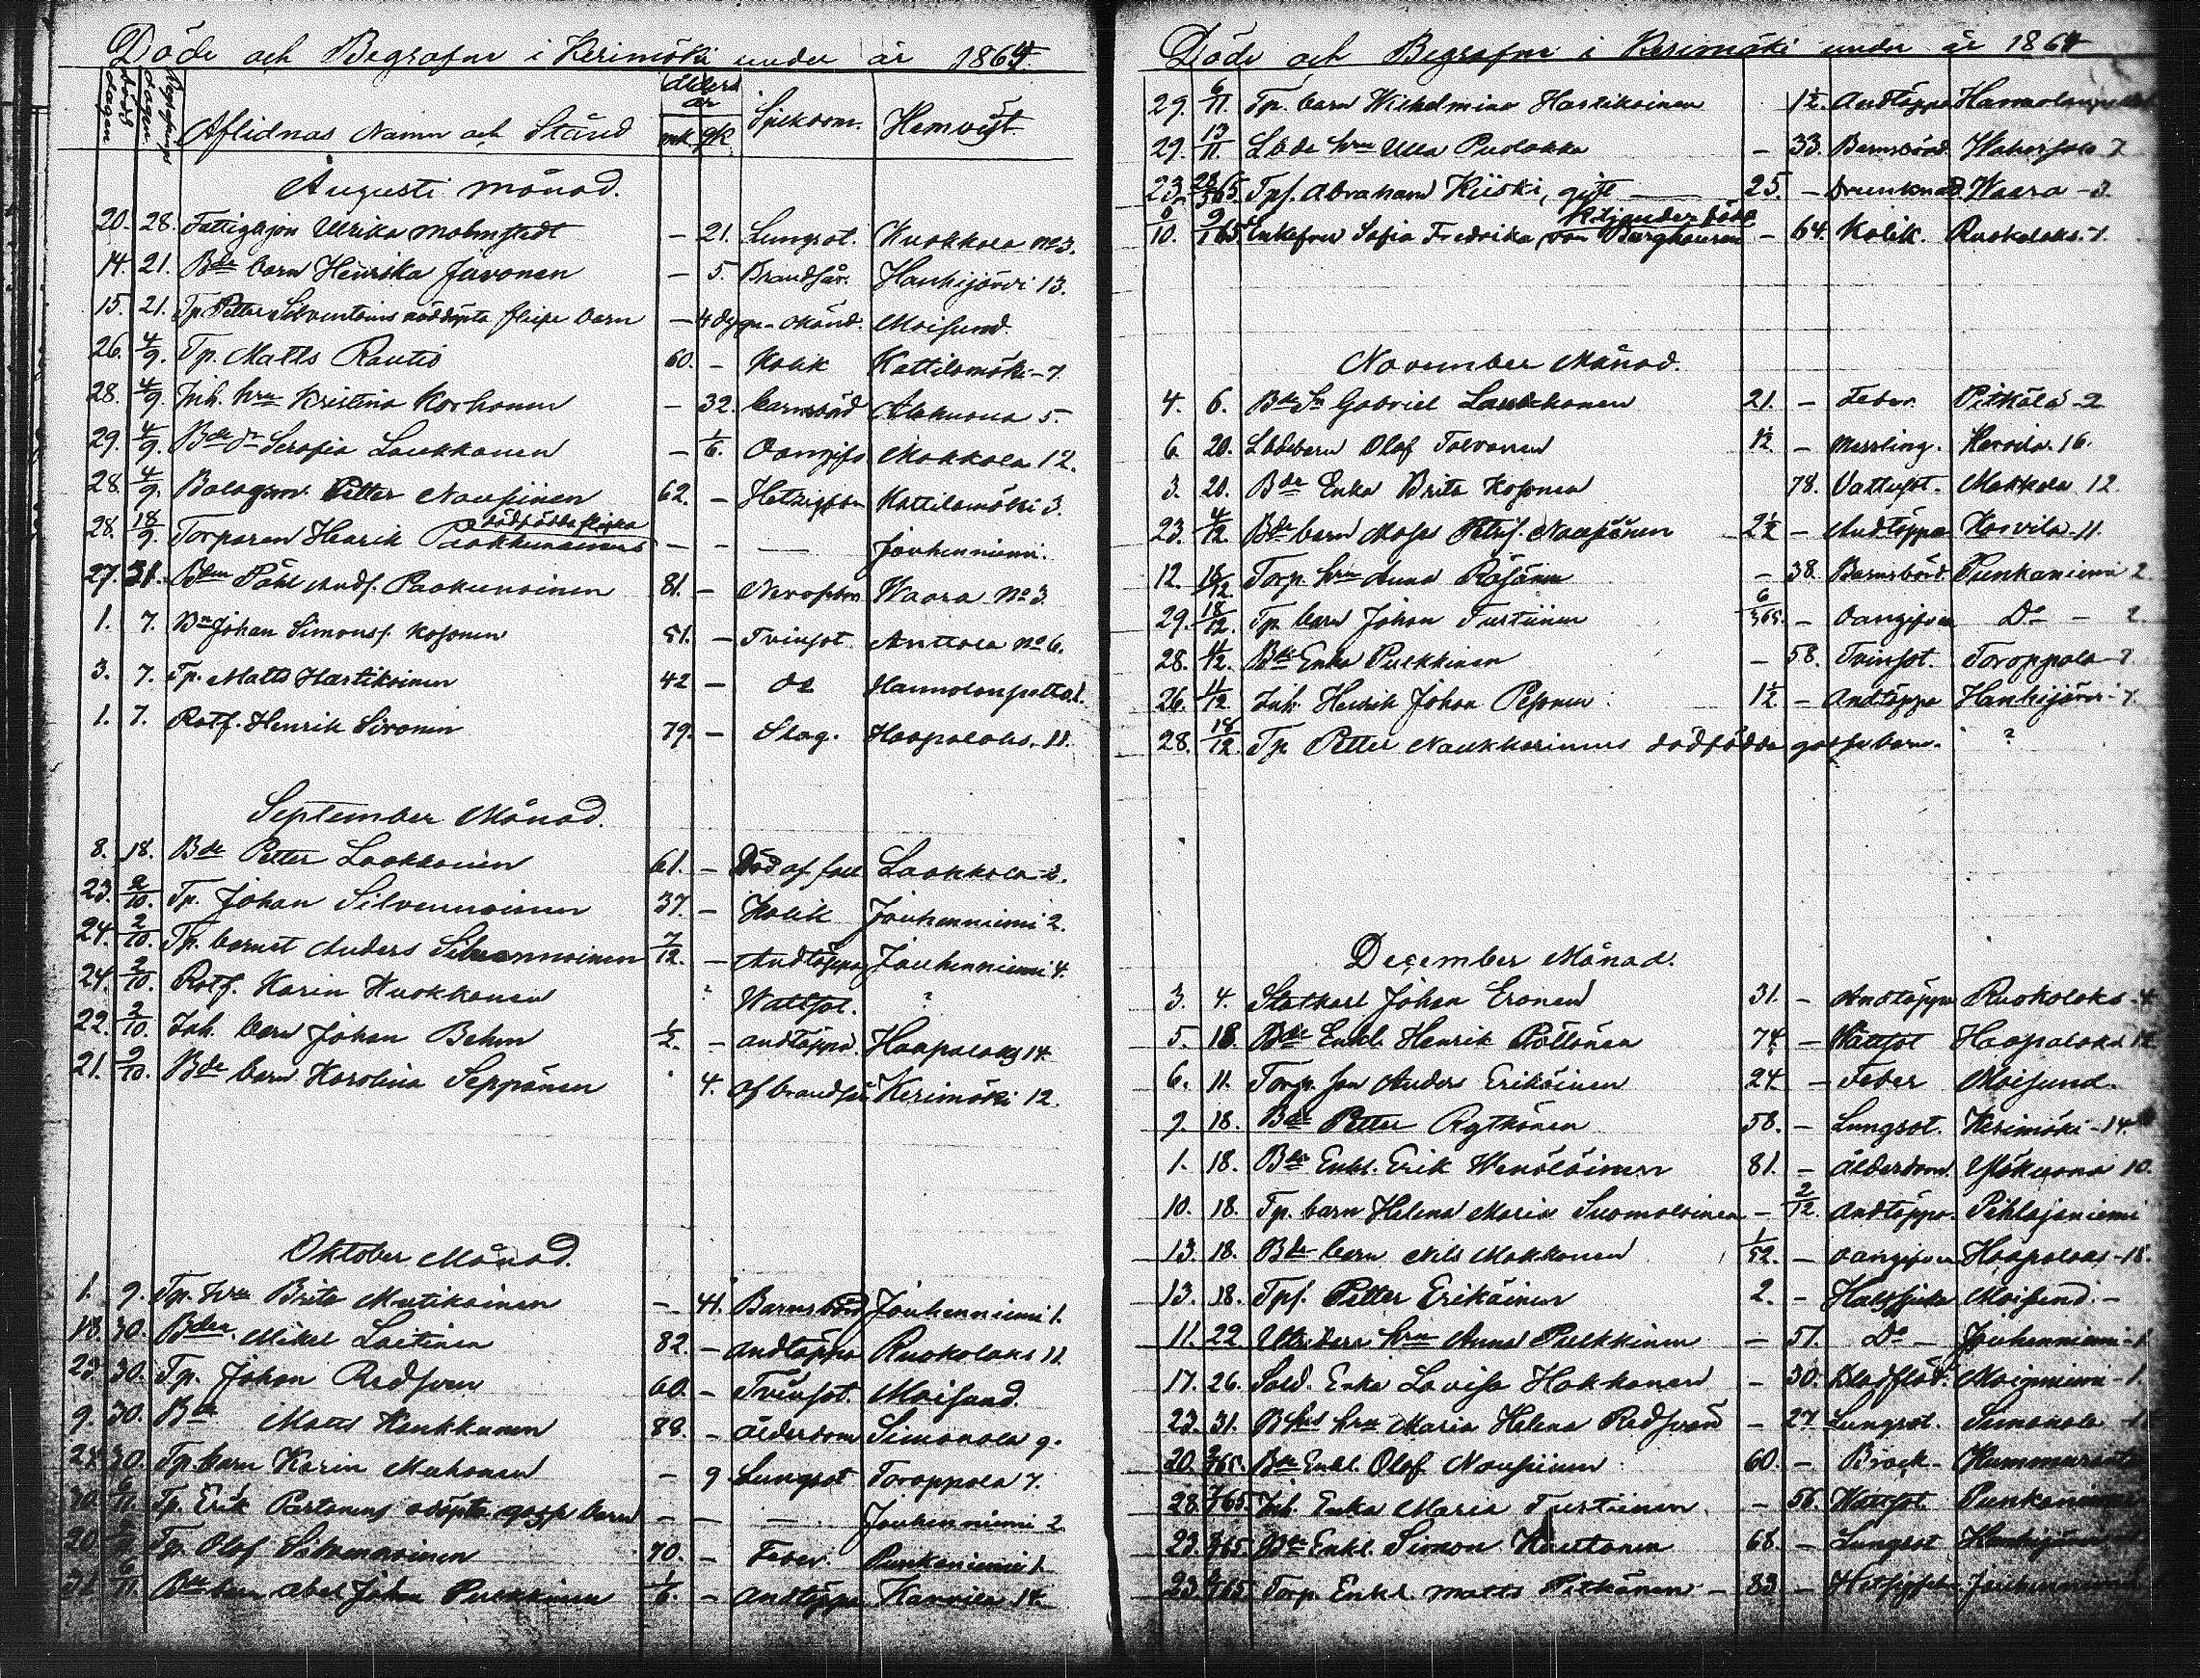 Döde och Begrafne i Kerimäki under år 1864.
Döda dagen Begrafnings dagen Aflidnas Namn och Stånd ålders år mk qk Sjukdom. Hemvist
Augusti månad.
20. 28. Fattighjon Ulrika Molmstedt — 21. Lungsot. Kuokkola No 3.
14. 21. Bde barn Henrika Javonen — 5. Brandsår. Hankijärvi 13.
15. 21. Tp. Petter Silventoins nöddöpta flicke barn — 4 dygn Moisund.
26. 4/9. Tp. Matts Rautio 60. — Kolik Kattilamäki - 7.
28. 4/9. Inh. hru Kristina Korhonen — 32. barnsbörd Alakuona 5.
29. 4/9. Bde Serafia Laukkanen — 1/6. Okänd Makkola 12.
28. 4/9. Petter Nousiainen 62. — Kattilamäki 3.
28. 18/9. Torparen Henrik Paakkunainens dödfödda flicka — — — Jouhenniemi.
27. 31. Påhl Andf. Paakunainen 81. — Waara No 3.
1. 7. Bn Johan Simonsf. Kosonen 51. — Tvinsot. Anttola No 6.
3. 7. Tp. Matts Hartikainen 42 — do
1. 7. Rotf. Henrik Sironen 79. — Slag. Haapalaks. 11.
September Månad.
8. 18. Bde Petter Laakkonen 61. — Död af fall Laakkola 3.
23. 2/10. Tp. Johan Silvennoinen 37. — Kolik Jouhenniemi 2.
24. 2/10. Tp. barnet Anders Silvennoinen 7/12. — Andtäppa Jouhenniemi 4.
24. 2/10. Rotf. Karin Kuokkanen ? Wattsot. ?
22. 2/10. Inh. barn Johan Behm 1/2. — andtäppa Haapalaks 14.
21. 2/10. Bde barn Karolina Seppänen 4. af brandsår Kerimäki 12.
Oktober Månad.
1. 9. Tp. hru Brita Mutikainen — 41. Barnsbörd Jouhenniemi 1.
18. 30. Mikel Laitinen 82. — andtäppa Ruokolaks 11.
23. 30. Tp. Johan Redsven 60. — Tvinsot. Moisund.
9. 30. Bde Matts Kaukkanen 88. — ålderdom Simanala 9.
24. 30. Tp. barn Karin Muhonen — 9. Lungsot Toroppala 7.
30. 6/11. Tp. Erik Partanens odöpta gosse barn — — — Jouhenniemi 2.
20. Tp. Olof Silvennoinen 70. — Feber. Punkaniemi 1.
31. 6/11. Bde barn Abel Johan Pulkkinen 1/6. — andtäppa Karvila 14.
Döde och Begrafne i Kerimäki under år 1864
29. 6/11. Tp. barn Wilhelmina Hartikainen 1 1/2. Andtäppa
29. 13/11. hru Ulla Puolakka — 33. Barnsbörd.
23. Tpf. Abraham Kiiski, gift — 25. — Drunknad Waara - 3.
Enkefru Sofia Fredrika von Burghausen — 64. Kolik. Ruokolaks. 1.
November Månad.
4. 6. Gabriel Laukkanen 21. — Feber. Pitkälä 2
6 20. Lösdebarn Olof Tolvanen 1 1/2. — Messling. Kerola 16.
3. 20. Bde Enka Brita Kosonen 78. Vattusot. Makkola 12.
23. 4/12. Bde barn Moses Petrif. Nousiainen 2 1/2 — Andtäppa Karvila 11.
12. Torp. hru Anna Räsänen — 38. Barnsbörd. Punkaniemi 2
29. 18/12. Tp. barn Johan Turtiinen 6/365. — Do 2.
28. 4/12. Bde Enka Pulkkinen — 58. Tvinsot. Toroppala - 7
26. 11/12 Inh. Henrik Johan Pesonen 1 1/2 — Andtäppa Hankijärvi 7.
28. 18/12. Tp. Petter Naukkarinens dödfödda gosse barn. ?
December Månad.
3. 4. Johan Eronen 31. — Andtäppa Ruokolaks - 4
5. 18. Bde Enkl. Henrik Pöllönen 74. — Wattsot Haapalaks 12
6. 11. Torp. Son Anders Eriköinen 24 — Feber Moisund.
9. 18. Bde Petter Rytkönen 58. — Lungsot. Kerimäki - 14.
1. 18. Bde Enkl. Erik Wenäläinen 81. — Ålderdom. Yläkuona 10.
10. 18. Tp. barn Helena Maria Suomalainen — 2/12. Andtäppa. Pihlajaniemi
13. 18. Bde barn Nils Makkonen 1/52. — Haapalaks - 18.
13. 18. Tpf. Petter Erikäinen 2. — Halssjuka Moisund. —
11. 22. hru Anna Pulkkinen — 57. Do — Jouhenniemi - 1
17. 26. Sold. Enka Lovisa Hakkanen — 30. Moinniemi - 1.
23. 31. hru Maria Helena Redsven — 27 Lungsot. Simanala
20. Bde Enkl. Olof Nousiinen 60. — Bråck — Kummuranta
28. Inh. Enka Maria Turtiinen — 56. Wattsot. Punkaniemi
23. Bde Enkl. Simon Kuittonen 68. — Lungsot
23. Torp. Enkl. Matts Pitkänen — 83. — Jouhenniemi